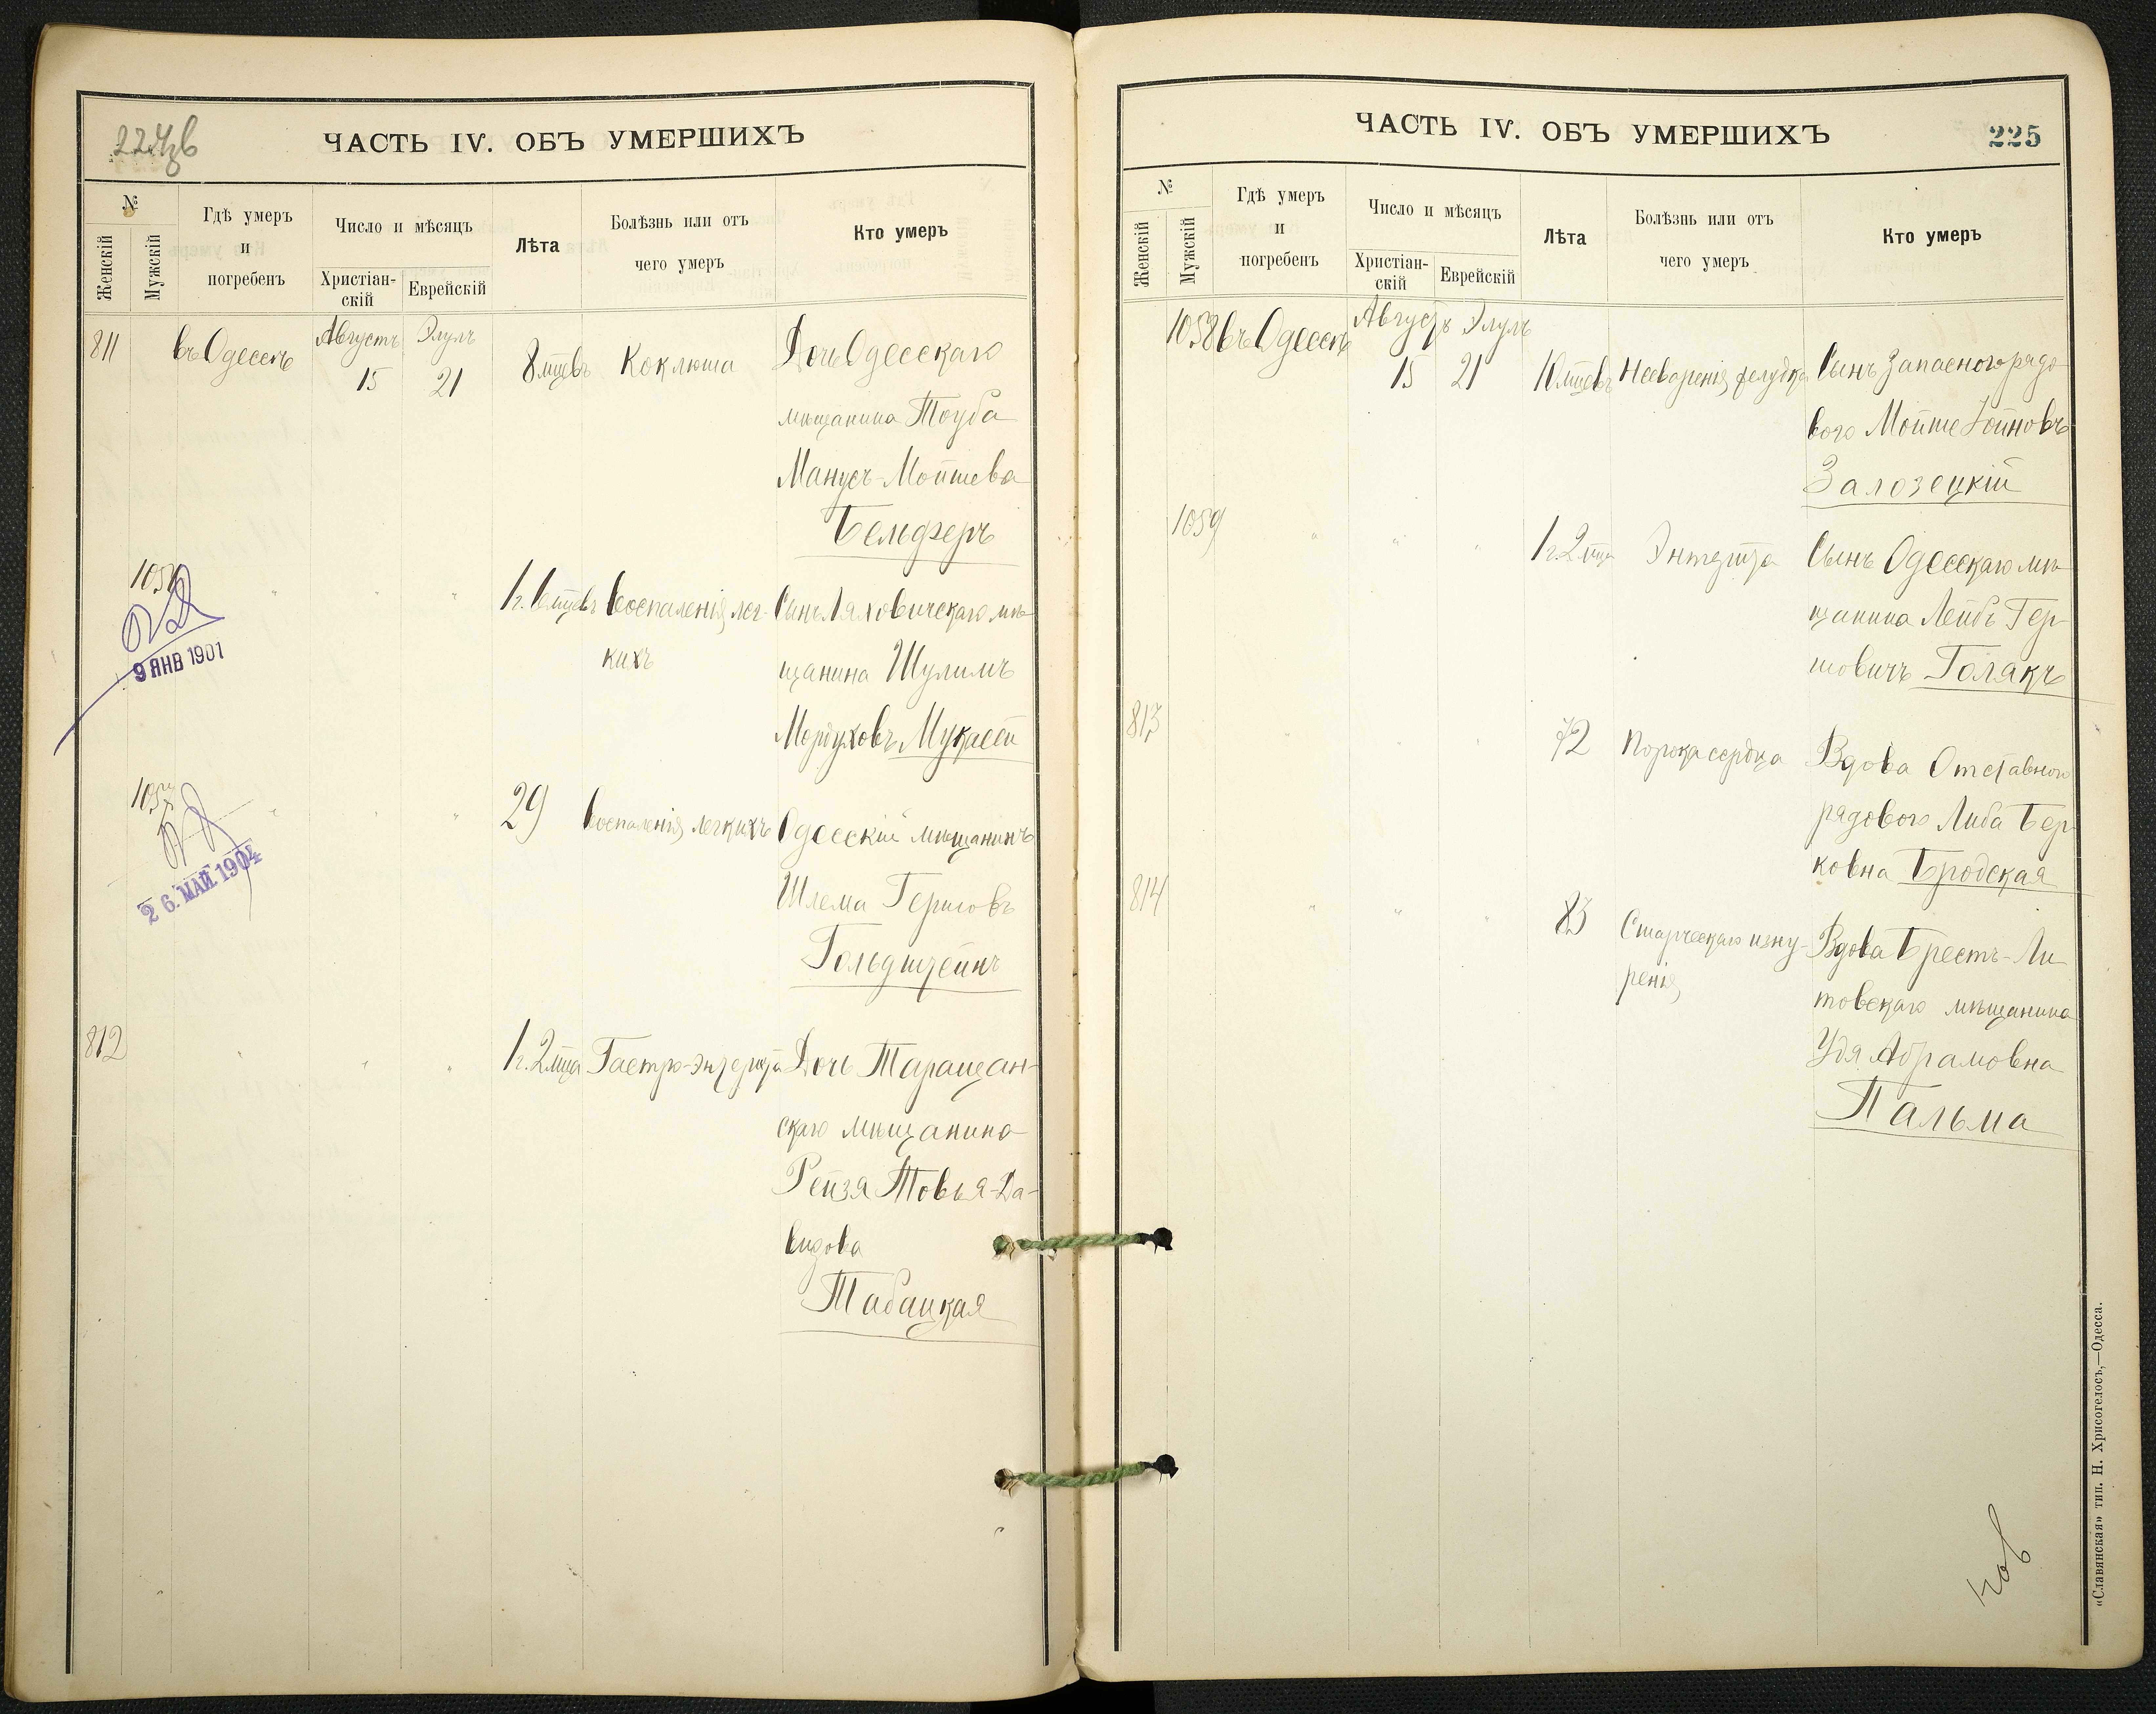 224об
ЧАСТЬ IV. ОБЪ УМЕРШИХЪ
№
Женскій
Мужскій
Гдѣ умеръ
и
погребенъ
Число и мѣсяцъ
Христіан-
скій
Еврейскій
Лѣта
Болѣзнь или отъ
чего умеръ
Кто умеръ
811 въ Одессѣ Августъ 15 Элулъ 21 8 мцевъ Коклюша Дочь Одесскаго
мѣщанина Тоуба
Манусъ-Мойшева
Бельферъ
9 ЯНВ 1901
1г. 6 мцевъ Воспаленія лег- Сынъ Ляховичскаго мѣ-
кихъ щанина Шулимъ
Мордуховъ Мукасей
1057 29 Воспаленія легкихъ Одесскій мѣщанинъ
26. МАЙ 1904
Шлема Гершовъ
Гольдштейнъ
812 " " " 1г. 2 мца Гастро-энтерита Дочь Таращан-
скаго мѣщанина
Рейзя Товья-Да-
видова
Табацкая
ЧАСТЬ IV. ОБЪ УМЕРШИХЪ
225
№
Женскій
Мужскій
Гдѣ умеръ
и
погребенъ
Число и мѣсяцъ
Христіан-
скій
Еврейскій
Лѣта
Болѣзнь или отъ
чего умеръ
Кто умеръ
1058 въ Одессѣ Августъ 15 Элулъ 21 10 мцевъ Несваренія желудка Сынъ Запасного рядо
вого Мойше Іойновъ
Залозецкій
1059 " " " 1г. 2 мца Энтерита Сынъ Одесскаго мѣ-
щанина Лейбъ Гер-
шовичъ Голякъ
813 " " " 72 Порока сердца Вдова Отставного
рядового Либа Бер-
ковна Бродская
814 " " " 83 Старческаго изну- Вдова Брестъ-Ли
ренія товскаго мѣщанина
Удя Абрамовна
Пальма
«Славянская» тип. Н. Хрисогелосъ,—Одесса.